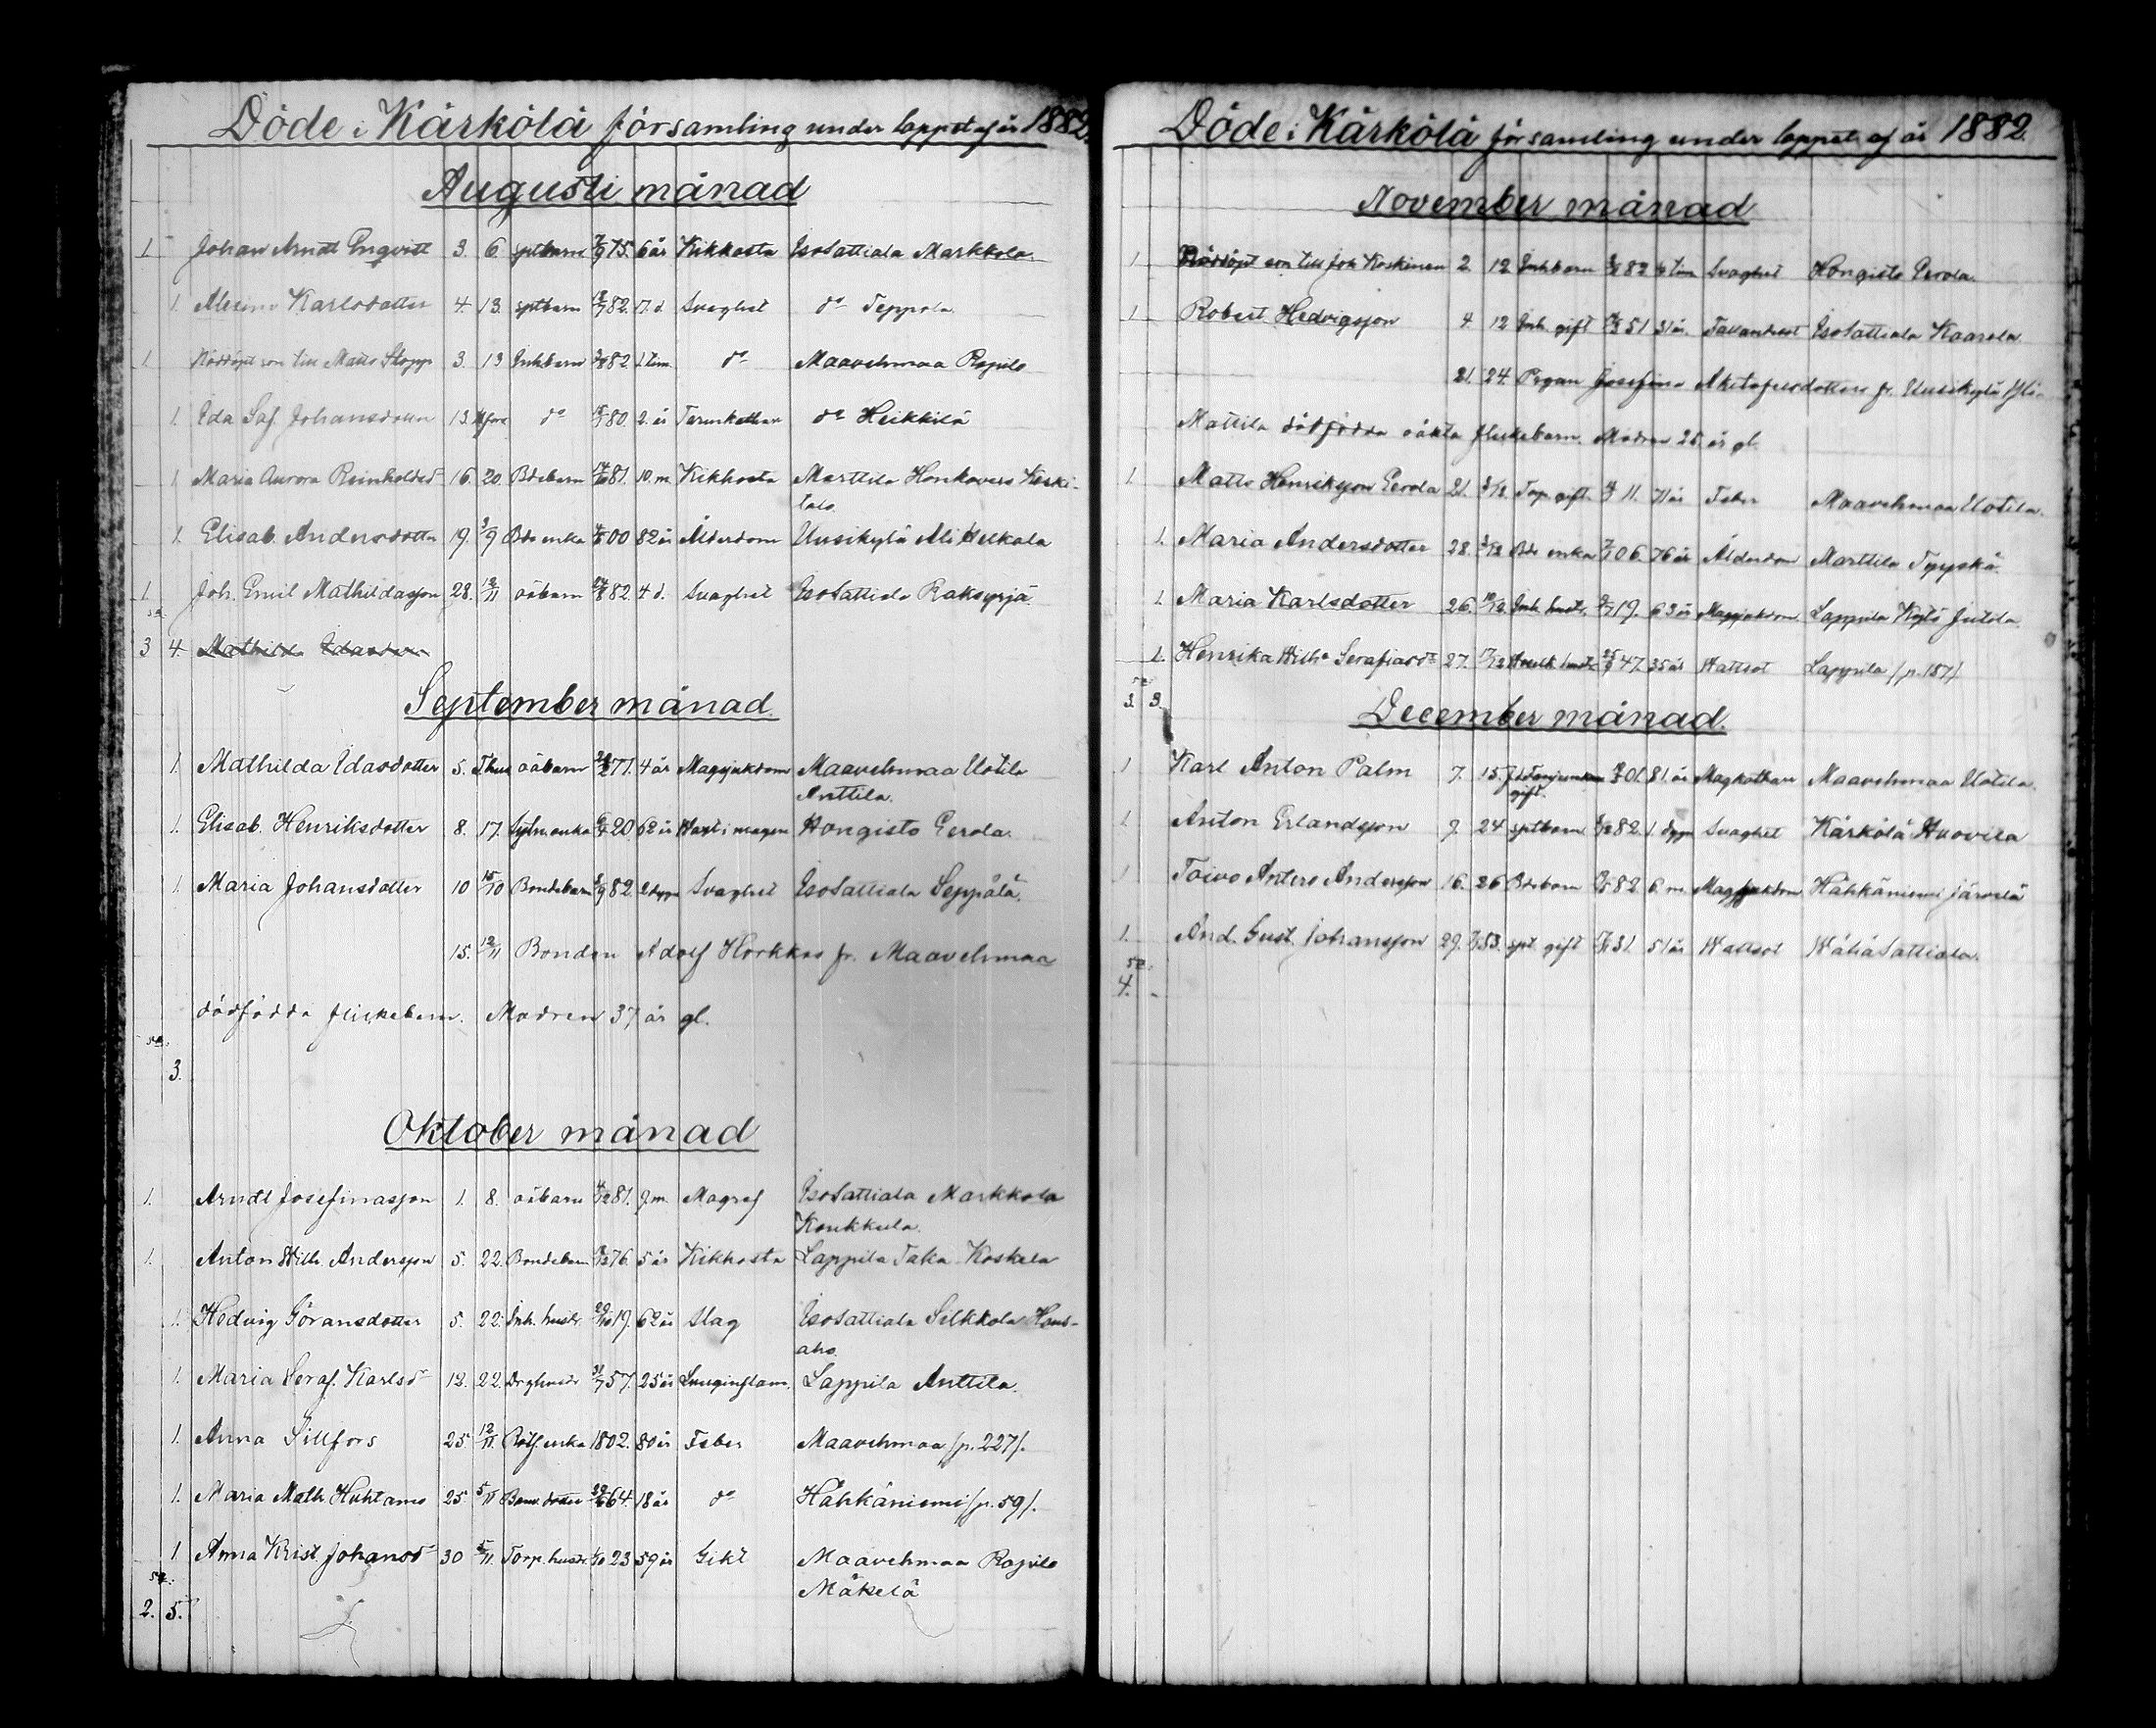 Döde i Kärkölä församling under loppet af år 1882.
Augusti månad
1. Johan Arndt Enqvist 3. 6. sptbarn 7/9 75. 6 år Kikhosta IsoSattiala Markkola.
1. Karlsdotter 4. 13. sptbarn 82. d. Svaghet d:o Seppola
1. Nöddöpt son till Matts Stopp 3. 13 Inhbarn 82. 1 tim. d:o Maavehmaa Rapila
1. Ida Saf. Johansdotter 13. d:o 80. 2. år Tarmkatharr d:o Heikkilä
1. Maria Aurora Reinholdsd:r 16. 20. Bdebarn 81. 10. m. Kikhosta Marttila Honkavuo Keski-
talo.
1. Elisab. Andersdotter 19. 3/9 Bde enka 00 82 år Ålderdom Uusikylä Ali Helkala
1. Joh. Emil Mathildasson 28. 12/11 oäbarn 24/8 82. 4 d. Svaghet IsoSattiala Raksyrjä
S:a
3 4. Mathilda Idasdotter
September månad.
1. Mathilda Idasdotter 5. oäbarn 77. 4 år Magsjukdom Maavehmaa Uotila
Anttila.
1. Elisab. Henriksdotter 8. 17. Sytn. enka 20. 62 år Värk i magen Hongisto Eerola.
1. Maria Johansdotter 10 15/10 Bondebarn 8/9 82. 2 dygn Svaghet IsoSattiala Seppälä.
15. 12/11 Bonden Adolf Horkkos fr. Maavehmaa
dödfödda flickebarn. Modren 37 år gl.
S:a:
3.
Oktober månad
1. Arndt Josefinasson 1. 8. oäbarn 81. 9. m. Magref IsoSattiala Markkola
Koukkula.
1. Anton Wilh. Andersson 5. 22. Bondebarn 76. 5 år Kikhosta Lappila Taka Koskela
1. Hedvig Göransdotter 5. 22. Inh. hustr. 29/10 19. 62 år Slag IsoSattiala Silkkola Hous-
aho.
1. Maria Seraf. Karlsd:r 12. 22. Drghustr 31/7 57. 25 år Lunginflam. Lappila Anttila.
1. Anna Sillfors 25. 12/11. Rotf. enka 1802. 80 år Feber Maavehmaa (p. 227).
1. Maria Math. Huhtamo 25. 5/11 dotter 64. 18 år d:o Hähkäniemi (p. 59).
1 Anna Krist. Johansd:r 30 5/11. Torp. hustr. 23 59 år Gikt Maavehmaa Rapila
Mäkelä
S:a:
2. 5.
Döde i Kärkölä församling under loppet af år 1882.
November månad
1. Nöddöpt son till Joh Koskinen 2. 12 Inhbarn 82 tim Svaghet Hongisto Eerola.
1. Robert Hedvigsson 4. 12 Inh. gift 51 31 år. IsoSattiala Kaarola
21. 24. Pigan Josefina dotters fr. Uusikylä
Mattila dödfödda oäkta flickebarn. Modren 25. år gl.
1. Matts Henriksson Eerola 21. 3/12. Torp. gift. 11. 71 år Feber Maavehmaa Uotila.
1. Maria Andersdotter 28. 3/12 Bde enka 06. 76 år Ålderdom Marttila Tyyskä.
1. Maria Karlsdotter 26. 10/12. Inh. hustr. 19. 63 år Magsjukdom Lappila Jutila.
1. Henrika Wilh:a Serafiasd:r 27. 17/12 hustr 25/9 47. 35 år Wattsot Lappila (p. 157)
S:a
3. 3.
December månad.
1 Karl Anton Palm 7. 15. 01. 81. år Magkatharr Maavehmaa Uotila.
gift.
1. Anton Erlandsson 9. 24 sptbarn 82. 1. dygn Svaghet Kärkölä Huovila
1 Toivo Antero Andersson 16. 26 Bdebarn 82 6. m. Magsjukdom Hähkäniemi Järvelä
1. And. Gust. Johansson 29. 7/1 83. spt. gift 31. 51 år Wattsot WähäSattiala.
S:a:
4. -